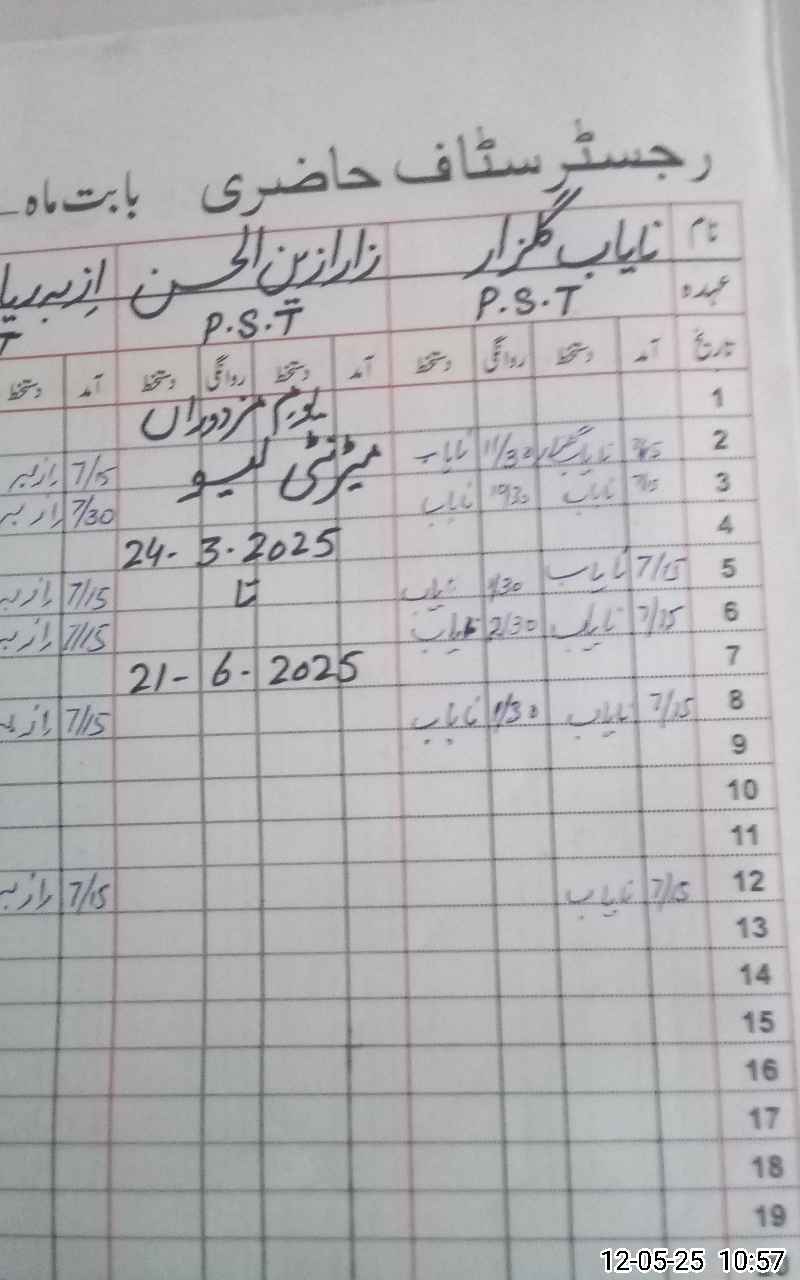 رجسٹر سٹاف حاضری بابت ماہ
نام نایاب گلزار زارا زین الحسن
عہدہ P.S.T P.S.T
تاریخ آمد دستخط روانگی دستخط آمد دستخط روانگی دستخط آمد دستخط
1 یوم مزدوراں
2 7/15 نایاب گلزار 11/30 نایاب میٹرنٹی لیو 7/15
3 7/15 نایاب نایاب 7/30
4 24-3-2025
5 7/15 نایاب 1/30 نایاب تا 7/15
6 7/15 نایاب 2/30 نایاب 7/15
7 21-6-2025
8 7/15 نایاب 1/30 نایاب 7/15
9
10
11
12 7/15 نایاب 7/15
13
14
15
16
17
18
19
12-05-25 10:57